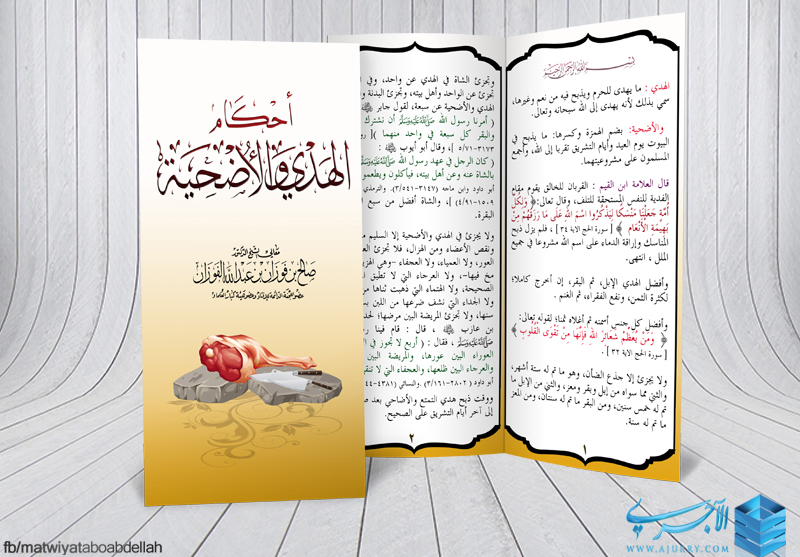 أحكام
الهدي والأضحية
معالي الشيخ الدكتور
صالح بن فوزان بن عبد الله الفوزان
عضو اللجنة الدائمة للإفتاء وعضو هيئة كبار العلماء
بسم الله الرحمن الرحيم
الهدي : ما يهدى للحرم ويذبح فيه من نعم وغيرها،
سمي بذلك لأنه يهدى إلى الله سبحانه وتعالى.
والأضحية: بضم الهمزة وكسرها: ما يذبح في
البيوت يوم العيد وأيام التشريق تقربا إلى الله، وأجمع
المسلمون على مشروعيتهما.
قال العلامة ابن القيم : القربان للخالق يقوم مقام
الفدية للنفس المستحقة للتلف، وقال تعالى:﴿ وَلِكُلِّ
أُمَّةٍ جَعَلْنَا مَنْسَكًا لِيَذْكُرُوا اسْمَ اللَّهِ عَلَى مَا رَزَقَهُمْ مِنْ
بَهِيمَةِ الْأَنْعَامِ ﴾ [ سورة الحج الاية ٣٤ ]، فلم يزل ذبح
المناسك وإراقة الدماء على اسم الله مشروعا في جميع
الملل ، انتهى.
وأفضل الهدي الإبل، ثم البقر، إن أخرج كاملا؛
لكثرة الثمن، ونفع الفقراء، ثم الغنم .
وأفضل كل جنس أسمنه ثم أغلاه ثمنا؛ لقوله تعالى:
﴿ وَمَنْ يُعَظِّمْ شَعَائِرَ اللَّهِ فَإِنَّهَا مِنْ تَقْوَى الْقُلُوبِ ﴾
[ سورة الحج الاية ٣٢ ] .
ولا يجزئ إلا جذع الضأن، وهو ما تم له ستة أشهر،
والثني مما سواه من إبل وبقر ومعز، والثني من الإبل ما
تم له خمس سنين، ومن البقر ما تم له سنتان، ومن المعز
ما تم له سنة.
١
وتجزئ الشاة في الهدي عن واحد، وفي
تجزئ عن الواحد وأهل بيته، وتجزئ البدنة و
الهدي والأضحية عن سبعة، لقول جابر
( أمرنا رسول الله ﷺ أن نشترك
والبقر كل سبعة في واحد منهما )[
٣١٧٣-٥/٧١ ]، وقال أبو أيوب :
( كان الرجل في عهد رسول الله ﷺ
بالشاة عنه وعن أهل بيته، فيأكلون ويطعمو
أبو داود وابن ماجه (٣١٤٧-٣/٥٤١) والترمذي
١٥٠٩-٤/٩١) ]، والشاة أفضل من سبع
البقرة.
ولا يجزئ في الهدي والأضحية إلا السليم م
ونقص الأعضاء ومن الهزال، فلا تجزئ الع
العور، ولا العمياء، ولا العجفاء -وهي الهزي
مخ فيها-، ولا العرجاء التي لا تطيق
الصحيحة، ولا الهتماء التي ذهبت ثناها م
ولا الجداء التي نشف ضرعها من اللبن بس
سنها، ولا تجزئ المريضة البين مرضها؛ لحد
بن عازب ، قال : قام فينا ر
ﷺ، فقال : ( أربع لا تجوز في
العوراء البين عورها، والمريضة البين
والعرجاء البين ظلعها، والعجفاء التي لا تنق
أبو داود (٢٨٠٢-٣/١٦١). والنسائي (٤٣٨١-٤٤
ووقت ذبح هدي التمتع والأضاحي بعد ص
إلى آخر أيام التشريق على الصحيح.
٢
fb/matwiyataboabdellah
الآجري
WWW.AJURRY.COM